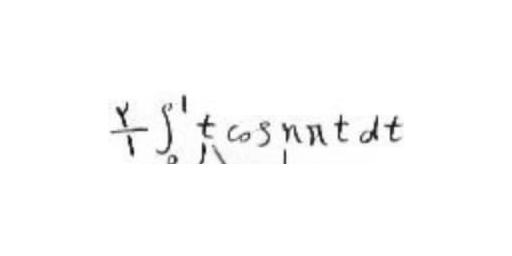 ۲/۱ ∫₀¹ t cos nπt dt